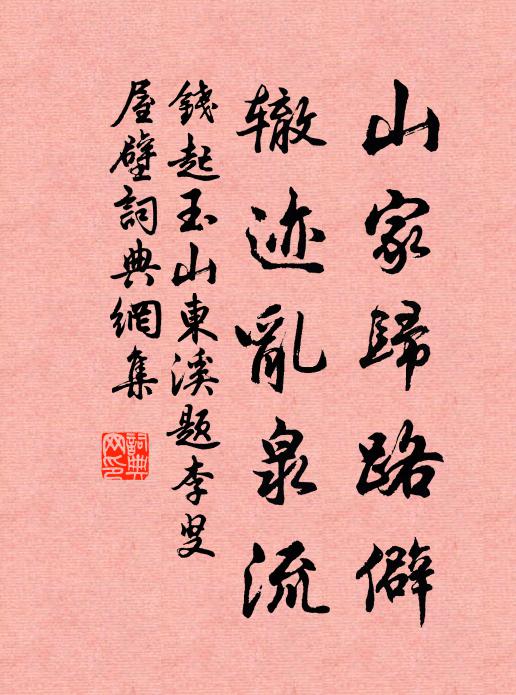 山家歸路僻
辙迹亂泉流
錢起玉山東溪题李叟
屋壁詞典網集
詞典网印